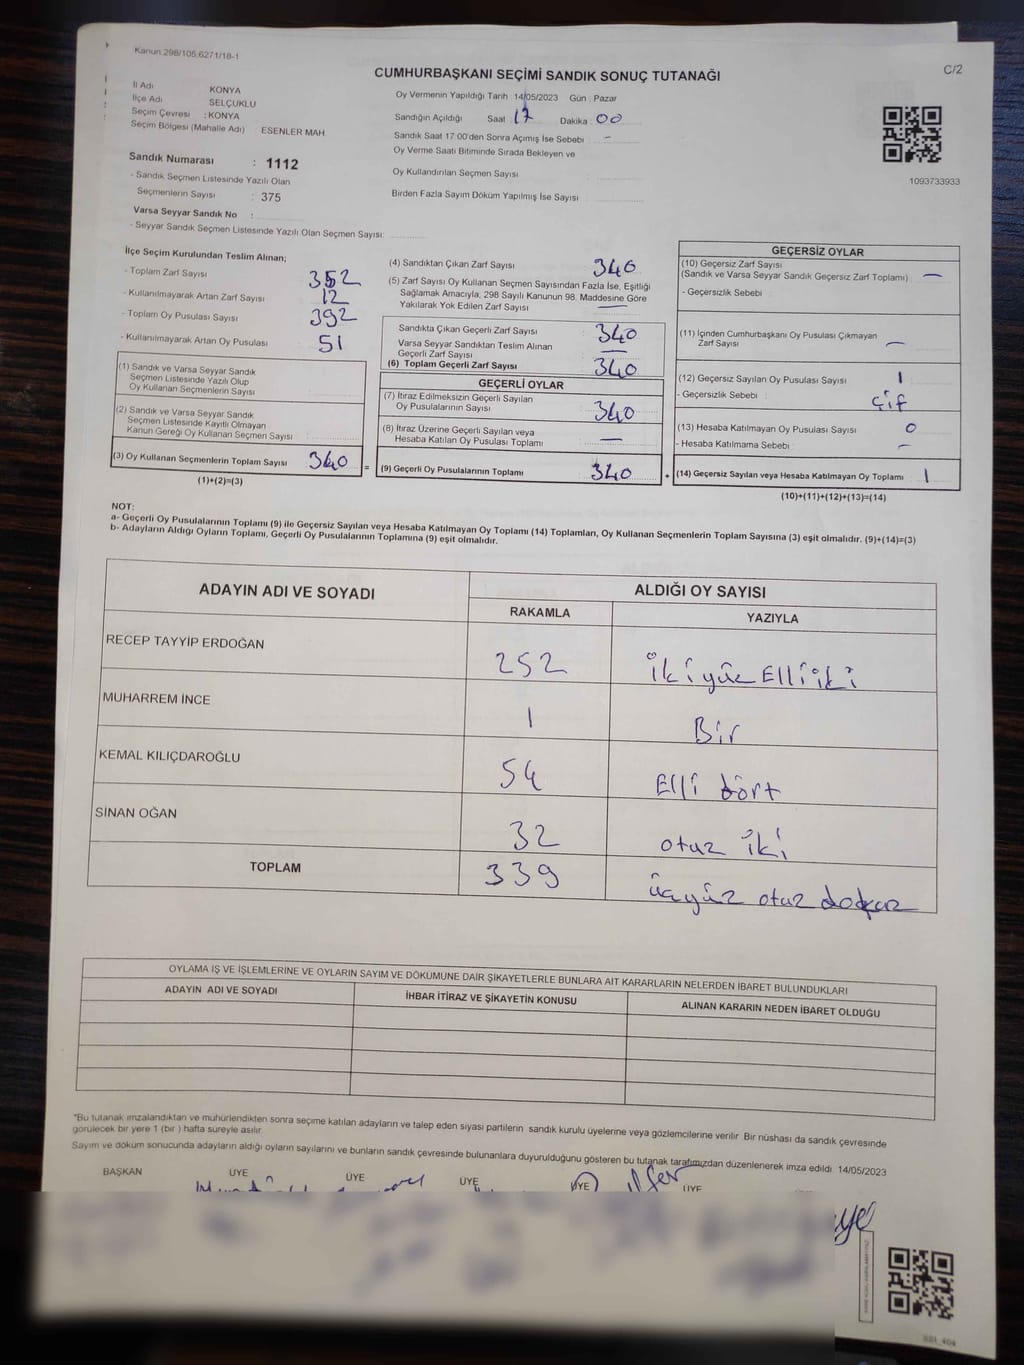 Kanun 298/105,6271/18-1
C/2
CUMHURBAŞKANI SEÇİMİ SANDIK SONUÇ TUTANAĞI
İl Adı KONYA
İlçe Adı SELÇUKLU
Seçim Çevresi : KONYA
Seçim Bölgesi (Mahalle Adı) ESENLER MAH
Oy Vermenin Yapıldığı Tarih 14/05/2023 Gün : Pazar
Sandığın Açıldığı Saat 17 Dakika : 00
Sandık Saat 17 00'den Sonra Açımış İse Sebebi : -
Oy Verme Saati Bitiminde Sırada Bekleyen ve
Oy Kullandırılan Seçmen Sayısı
Birden Fazla Sayım Döküm Yapılmış İse Sayısı
1093733933
Sandık Numarası : 1112
- Sandık Seçmen Listesinde Yazılı Olan
Seçmenlerin Sayısı : 375
Varsa Seyyar Sandık No :
- Seyyar Sandık Seçmen Listesinde Yazılı Olan Seçmen Sayısı:
İlçe Seçim Kurulundan Teslim Alınan;
- Toplam Zarf Sayısı 352
- Kullanılmayarak Artan Zarf Sayısı 12
- Toplam Oy Pusulası Sayısı 392
- Kullanılmayarak Artan Oy Pusulası 51
(1) Sandık ve Varsa Seyyar Sandık
Seçmen Listesinde Yazılı Olup
Oy Kullanan Seçmenlerin Sayısı
(2) Sandık ve Varsa Seyyar Sandık
Seçmen Listesinde Kayıtlı Olmayan
Kanun Gereği Oy Kullanan Seçmen Sayısı
(3) Oy Kullanan Seçmenlerin Toplam Sayısı 340
(1)+(2)=(3)
=
(4) Sandıktan Çıkan Zarf Sayısı 340
(5) Zarf Sayısı Oy Kullanan Seçmen Sayısından Fazla İse, Eşitliği
Sağlamak Amacıyla, 298 Sayılı Kanunun 98. Maddesine Göre
Yakılarak Yok Edilen Zarf Sayısı —
Sandıkta Çıkan Geçerli Zarf Sayısı 340
Varsa Seyyar Sandıktan Teslim Alınan
Geçerli Zarf Sayısı —
(6) Toplam Geçerli Zarf Sayısı 340
GEÇERLİ OYLAR
(7) İtiraz Edilmeksizin Geçerli Sayılan
Oy Pusulalarının Sayısı 340
(8) İtiraz Üzerine Geçerli Sayılan veya
Hesaba Katılan Oy Pusulası Toplamı —
(9) Geçerli Oy Pusulalarının Toplamı 340
+
GEÇERSİZ OYLAR
(10) Geçersiz Zarf Sayısı
(Sandık ve Varsa Seyyar Sandık Geçersiz Zarf Toplamı) —
- Geçersizlik Sebebi :
(11) İçinden Cumhurbaşkanı Oy Pusulası Çıkmayan
Zarf Sayısı —
(12) Geçersiz Sayılan Oy Pusulası Sayısı 1
- Geçersizlik Sebebi : Çif
(13) Hesaba Katılmayan Oy Pusulası Sayısı 0
- Hesaba Katılmama Sebebi : -
(14) Geçersiz Sayılan veya Hesaba Katılmayan Oy Toplamı 1
(10)+(11)+(12)+(13)=(14)
NOT:
a- Geçerli Oy Pusulalarının Toplamı (9) ile Geçersiz Sayılan veya Hesaba Katılmayan Oy Toplamı (14) Toplamları, Oy Kullanan Seçmenlerin Toplam Sayısına (3) eşit olmalıdır. (9)+(14)=(3)
b- Adayların Aldığı Oyların Toplamı, Geçerli Oy Pusulalarının Toplamına (9) eşit olmalıdır.
ADAYIN ADI VE SOYADI
ALDIĞI OY SAYISI
RAKAMLA YAZIYLA
RECEP TAYYİP ERDOĞAN 252 İkiyüz Elliiki
MUHARREM İNCE 1 Bir
KEMAL KILIÇDAROĞLU 54 Elli dört
SİNAN OĞAN 32 otuz iki
TOPLAM 339 üçyüz otuz dokuz
OYLAMA İŞ VE İŞLEMLERİNE VE OYLARIN SAYIM VE DÖKÜMÜNE DAİR ŞİKAYETLERLE BUNLARA AİT KARARLARIN NELERDEN İBARET BULUNDUKLARI
ADAYIN ADI VE SOYADI İHBAR İTİRAZ VE ŞİKAYETİN KONUSU ALINAN KARARIN NEDEN İBARET OLDUĞU
"Bu tutanak imzalandıktan ve mühürlendikten sonra seçime katılan adayların ve talep eden siyasi partilerin sandık kurulu üyelerine veya gözlemcilerine verilir Bir nüshası da sandık çevresinde
görülecek bir yere 1 (bir ) hafta süreyle asılır.
Sayım ve döküm sonucunda adayların aldığı oyların sayılarını ve bunların sandık çevresinde bulunanlara duyurulduğunu gösteren bu tutanak tarafımızdan düzenlenerek imza edildi. 14/05/2023
BAŞKAN ÜYE ÜYE ÜYE ÜYE ÜYE